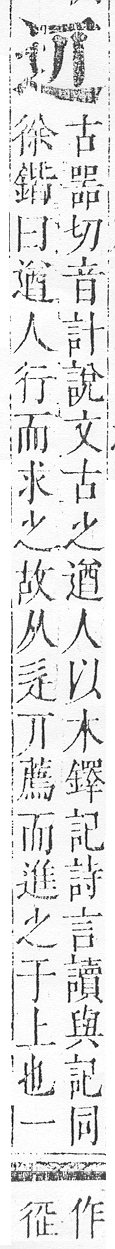 䢋
古噐切音計說文古之遒人以木鐸記詩言讀與記同
徐鍇曰遒人行而求之故从辵丌薦而進之于上也一
作
征